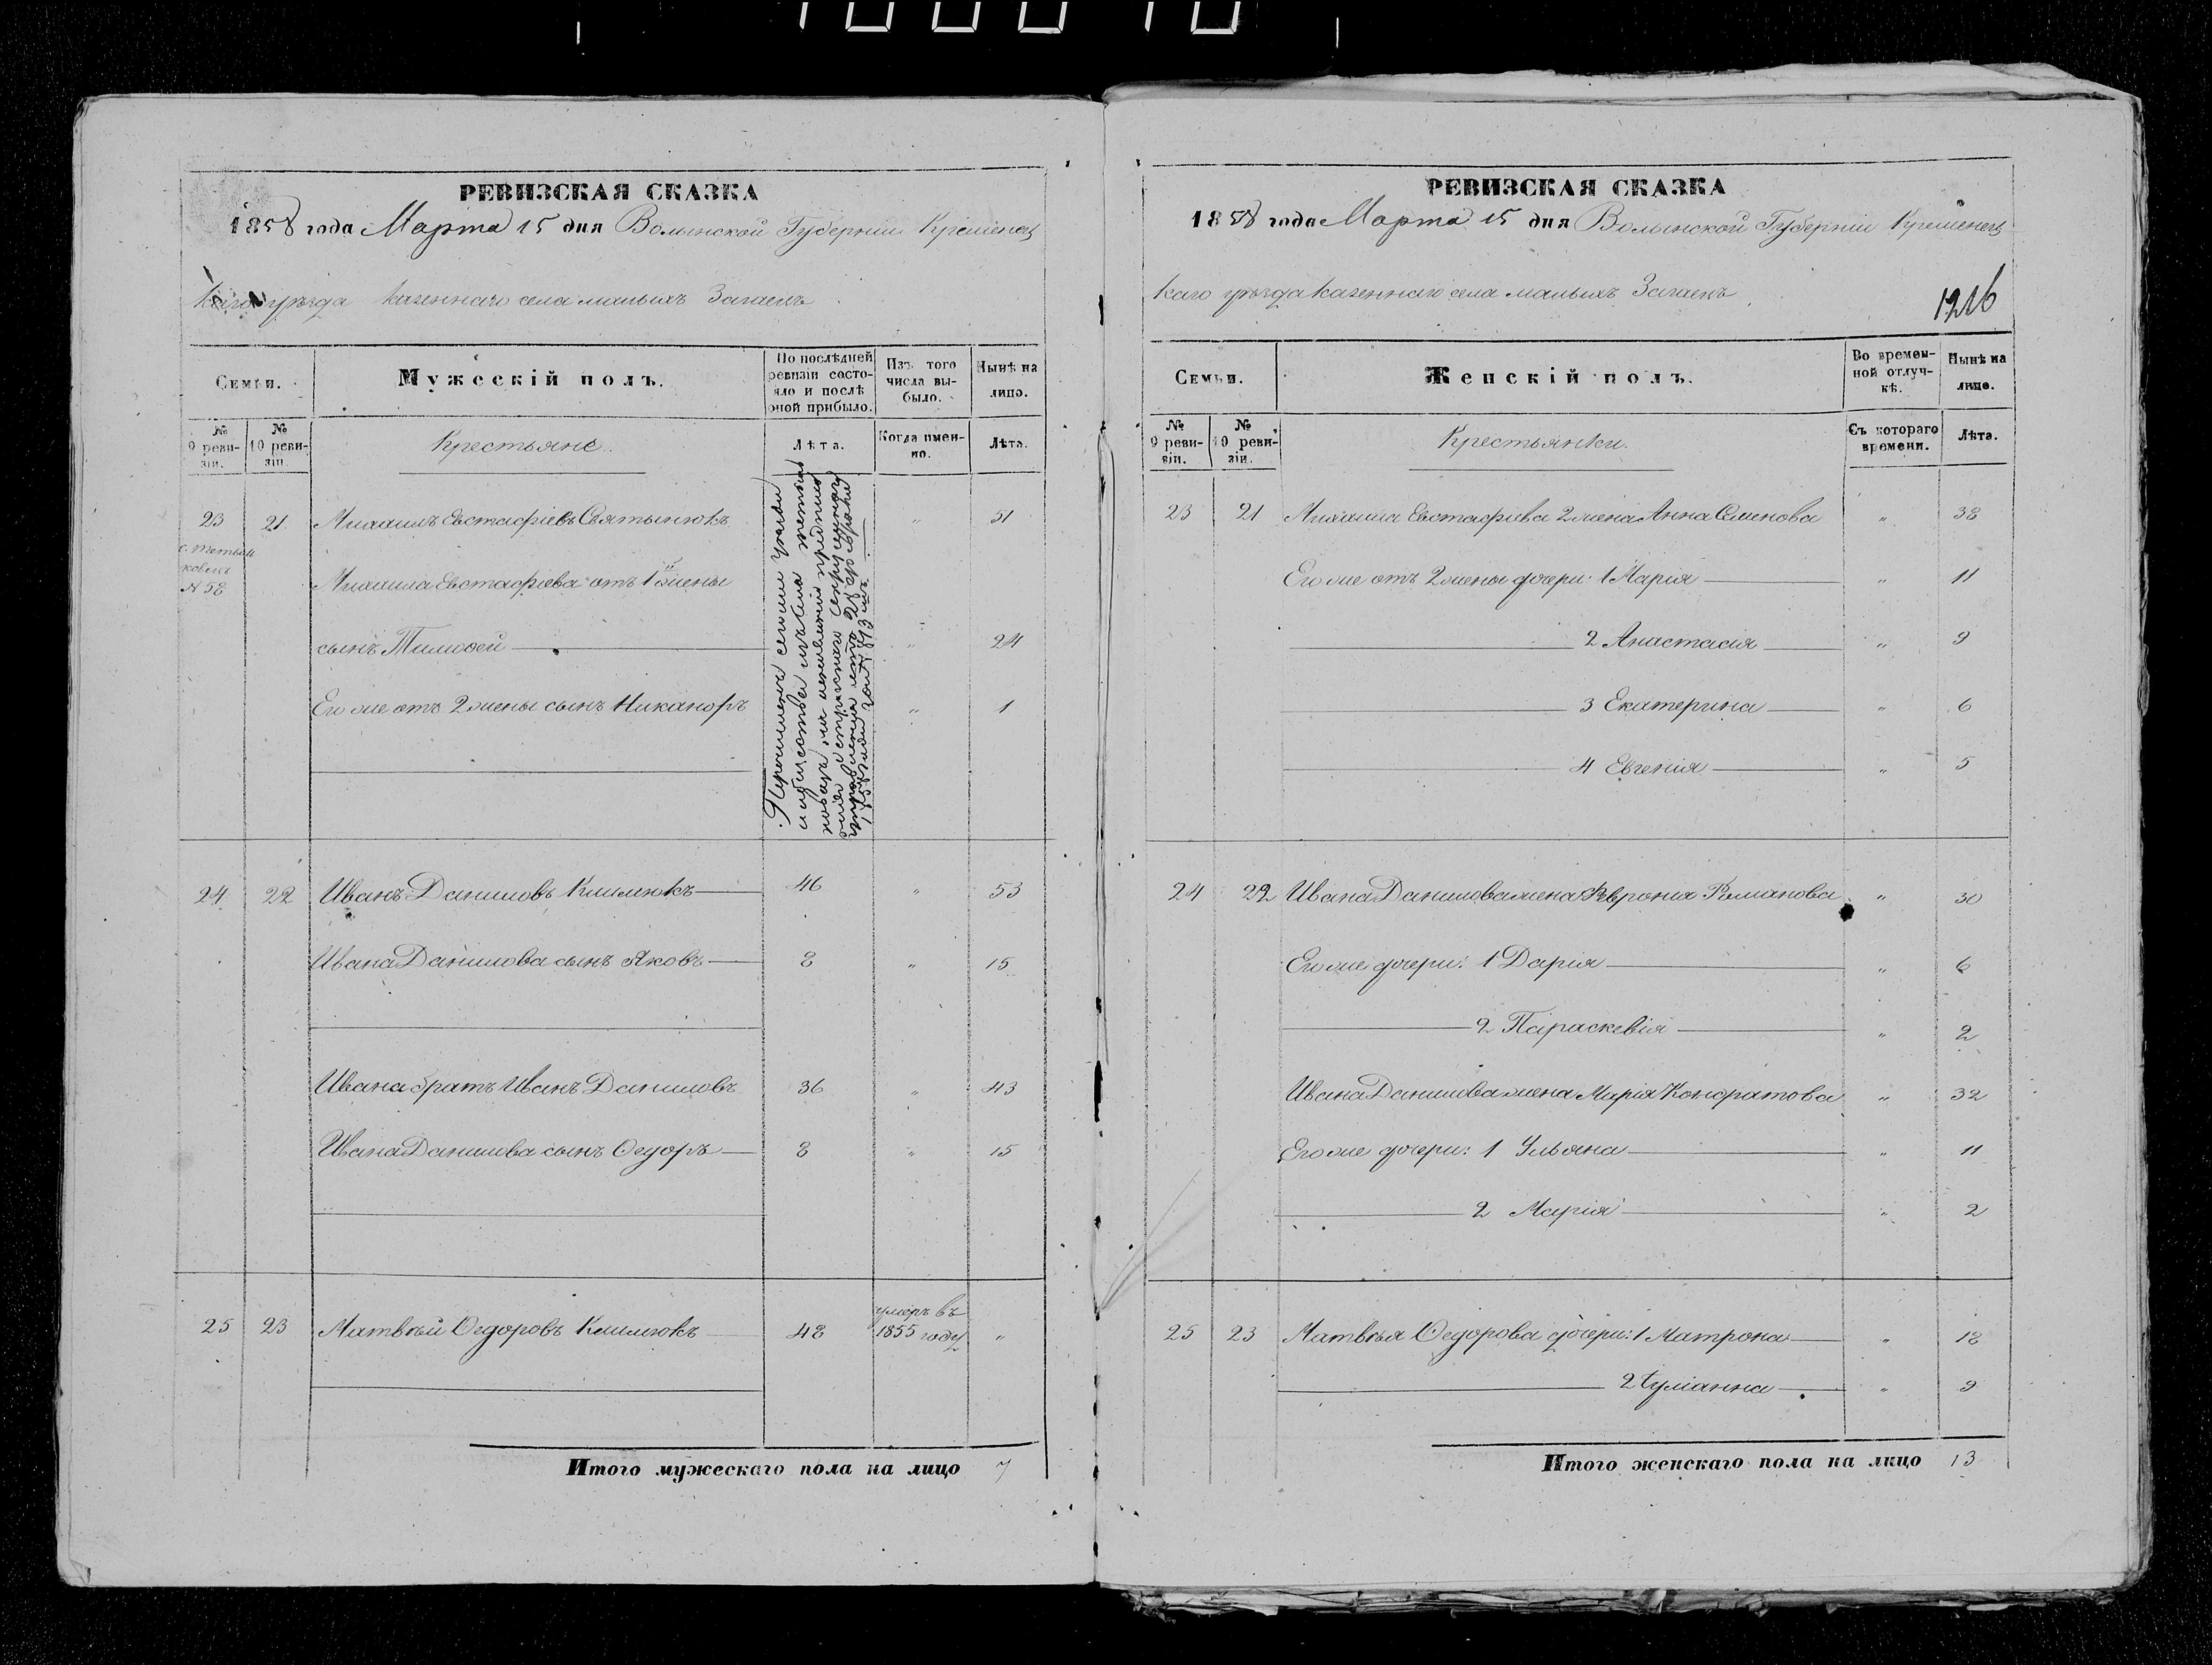 РЕВИЗСКАЯ СКАЗКА
1858 года Марта 15 дня Волынской Губерніи Кременец
каго уѣзда казеннаго села малыхъ Загаекъ
Семьи.
Мужескій полъ.
По послѣдней ревизіи состояло и послѣ оной прибыло.
Изъ того числа выбыло.
Нынѣ на лицо.
№ 9 ревизіи.
№ 10 ревизіи.
Крестьяне
Лѣта.
Когда именно.
Лѣта.
23 21 Михаилъ Евстафіевъ Святынюкъ " 51
с. Тетьковекъ
№ 58
Михаила Евстафіева отъ 1й жены
сынъ Тимофей " 24
Его же отъ 2 жены сынъ Никаноръ " 1
24 22 Иванъ Даниловъ Климюкъ 46 " 53
Ивана Данилова сынъ Яковъ 8 " 15
Ивана братъ Иванъ Даниловъ 36 " 43
Ивана Данилова сынъ Ѳедоръ 8 " 15
25 23 Матвѣй Ѳедоровъ Климюкъ 48 умеръ въ 1855 году "
Итого мужескаго пола на лицо 7
РЕВИЗСКАЯ СКАЗКА
1858 года Марта 15 дня Волынской Губерніи Кременец
каго уѣзда казеннаго села малыхъ Загаекъ
Семьи.
Женскій полъ.
Во временной отлучкѣ.
Нынѣ на лицо.
№ 9 ревизіи.
№ 10 ревизіи.
Крестьянки.
Съ котораго времени.
Лѣта.
23 21 Михаила Евстафіева 2 жена Анна Семенова " 38
Его же отъ 2 жены дочери: 1 Марія " 11
2 Анастасія " 9
3 Екатерина " 6
4 Евгенія " 5
24 22 Ивана Данилова жена Февронія Романова " 30
Его же дочери: 1 Дарія " 6
2 Параскевія " 2
Ивана Данилова жена Марія Кондратова " 32
Его же дочери: 1 Ульяна " 11
2 Марія " 2
25 23 Матвѣя Ѳедорова дочери: 1 Матрона " 18
2 Іуліанна " 9
Итого женскаго пола на лицо 13